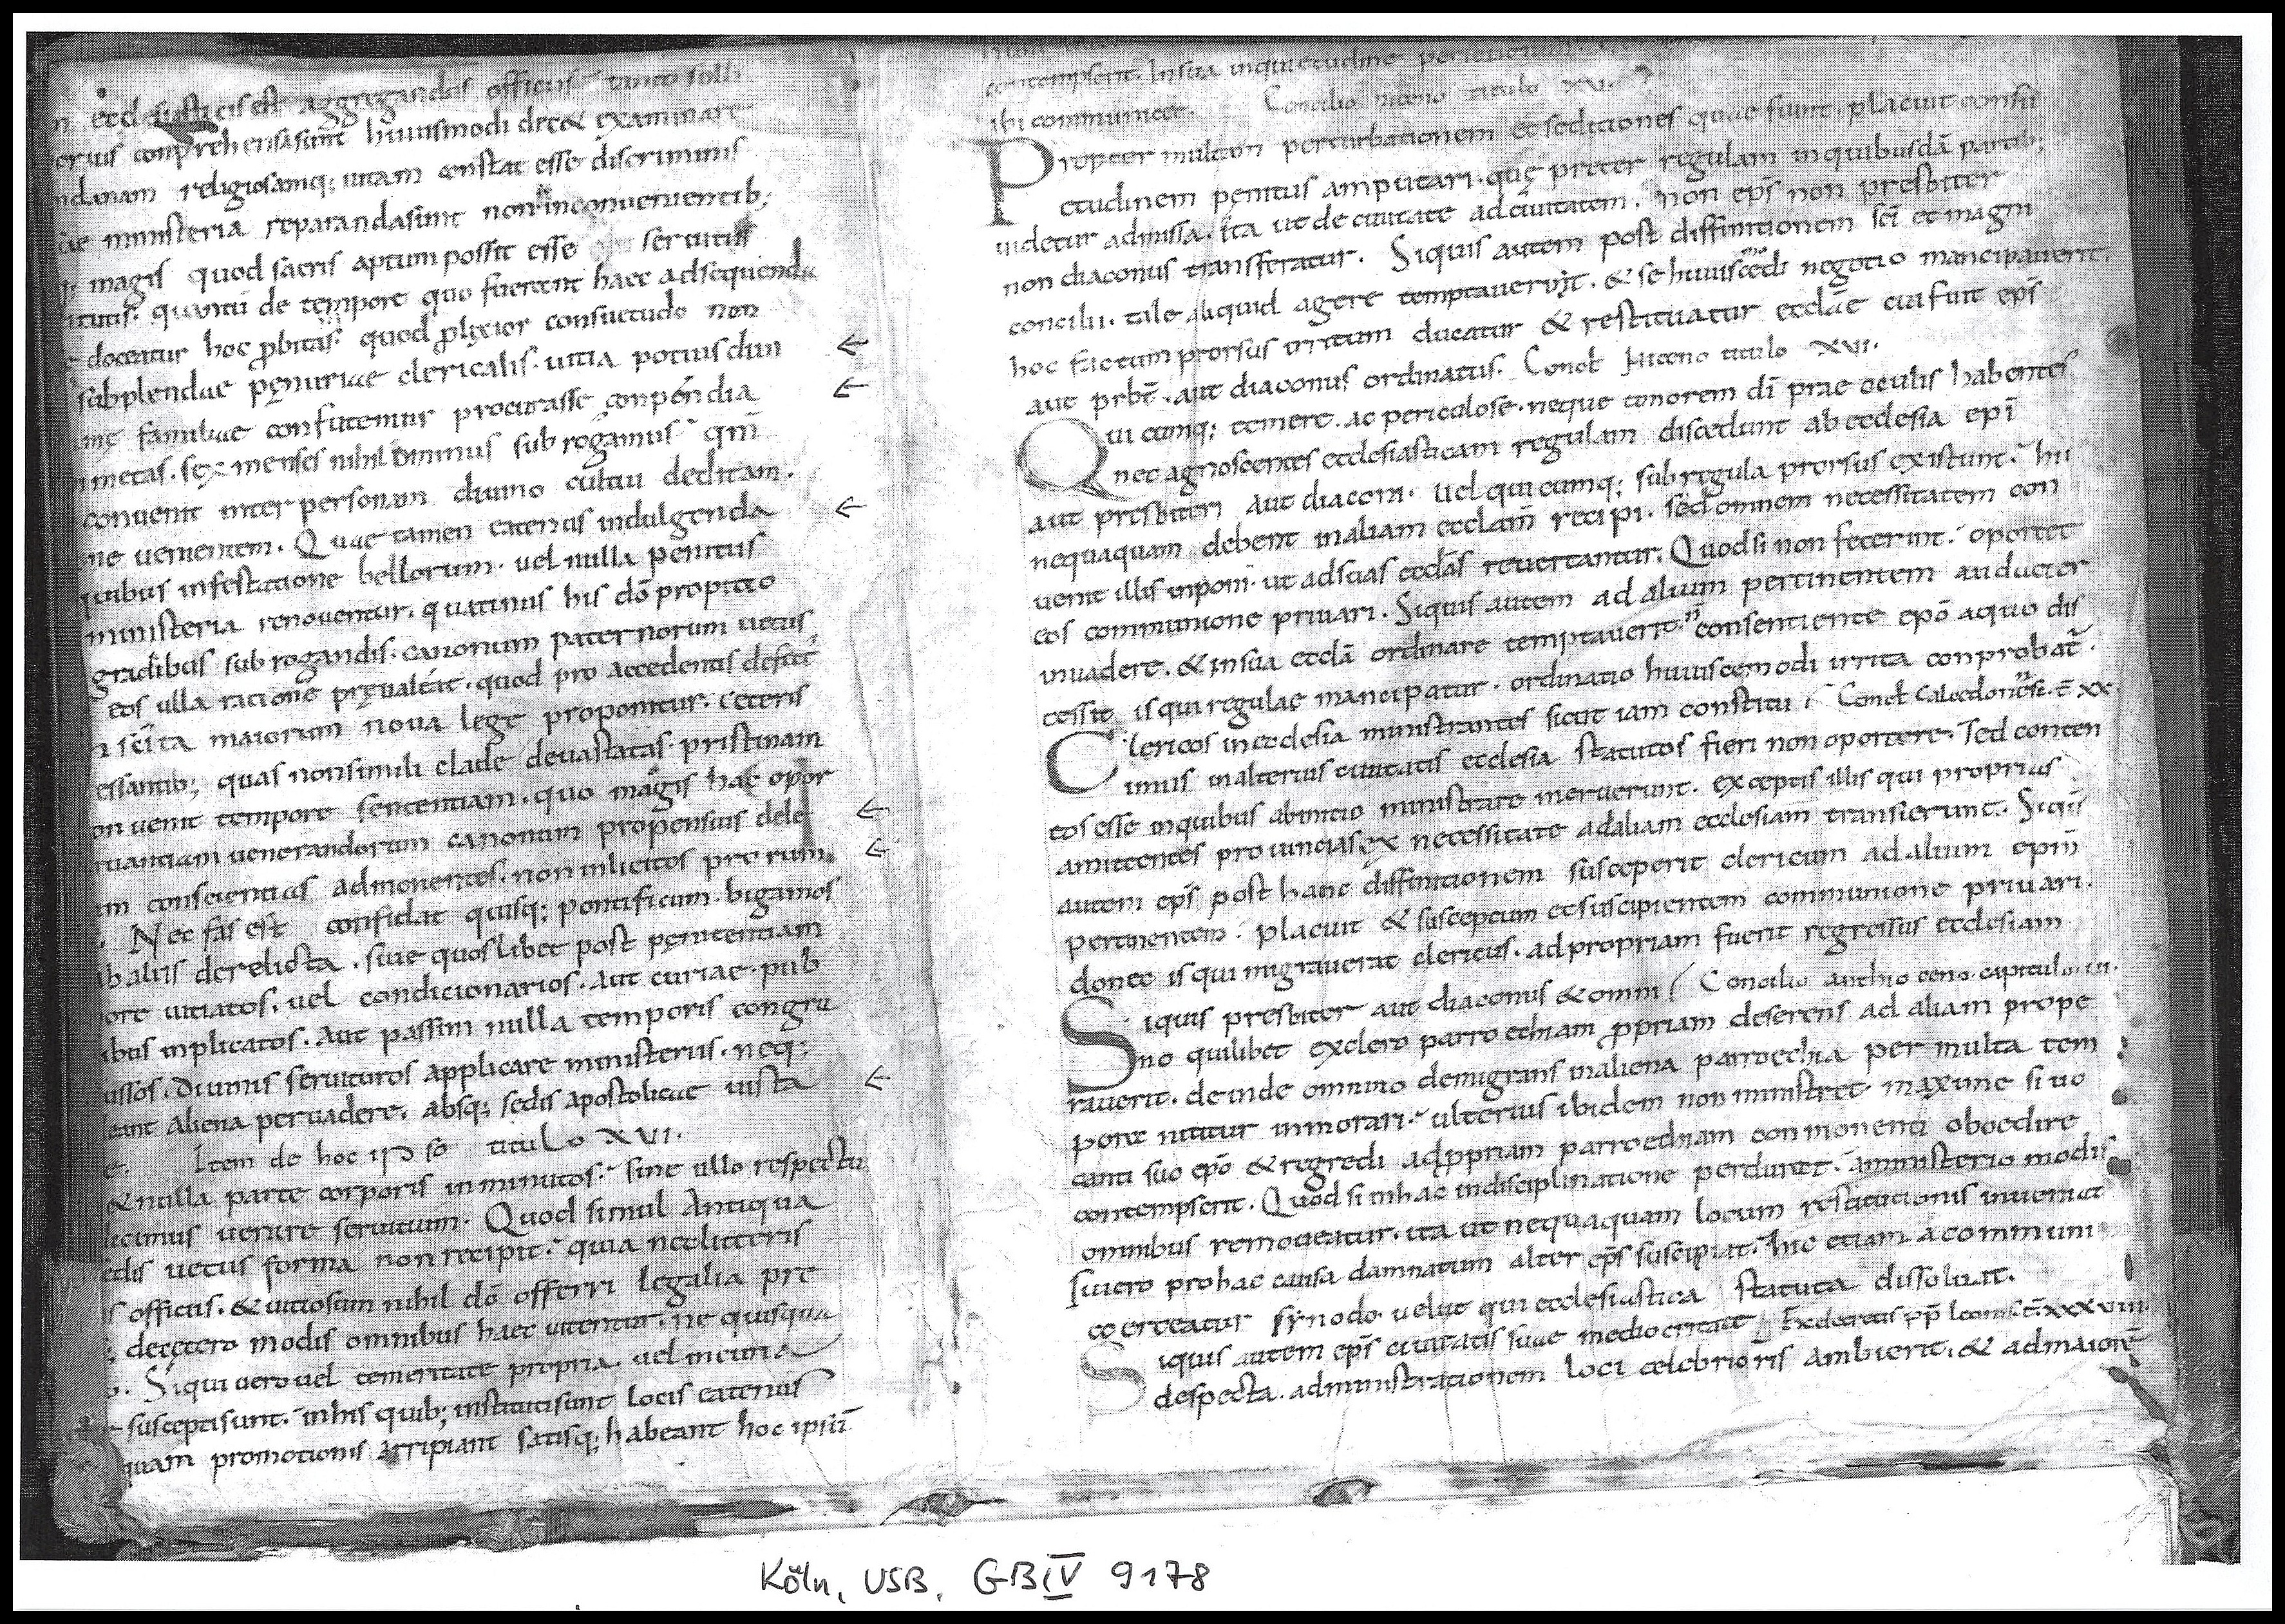 n ecclesiasticis est aggregandas officiis tanto solli
erius comprehensa sunt huiusmodi decet examinare
ndanam religiosamq; uitam constat esse discriminis
iae ministeria reparanda sunt non inconuenientib;
magis quod sacris aptum possit esse seruitiis
itutis. quantū de tempore quo fuerant haec adsequenda
doceatur hoc ꝓbitas quod ꝓlixior consuetudo non
subplendae pęnuriae clericalis. uitia potius diui
ianę familiae confutemur procurasse conpendia
metas. sex menses nihilominus subrogamus qm̄
conuenit inter personam diuino cultui deditam.
ne uenientem. Quae tamen eatenus indulgenda
quibus infestatione bellorum. uel nulla penitus
ministeria renouentur. quatinus his dō propitio
gradibus subrogandis. canonum paternorum uetus
eos ulla ratione pręualeat. quod pro accedentis defect
n scīta maiorum noua lege proponitur. Ceteris
essantib; quas non simili clade deuastatas pristinam
on uenit tempore sententiam. quo magis hac opor
ruantiam uenerandorum canonum propensius dele
um conscientias admonentes. non inlicitos prorum
. Nec fas est confidat quisq; pontificum. bigamos
ab aliis derelicta. siue quoslibet post pęnitentiam
ore uitiatos. uel condicionarios. aut curiae. pub
ibus inplicatos. aut passim nulla temporis congru
ussos. diuinis seruituros applicare ministeriis. neq;
eant aliena peruadere. absq; sedis apostolicae iusta
e. Item de hoc ipso titulo XVI.
& nulla parte corporis inminutos. sine ullo respectu
licimus uenire seruitium. Quod simul antiqua
edis uetus forma non recipit. quia nec litteris
s officiis. & uitiosum nihil dō offerri legalia pre
; decętero modis omnibus haec uitentur. ne quisqua
o. Siqui uero uel temeritate propria. uel incuria
suscepti sunt. in his quib; instituti sunt locis eatenus
quam promotionis arripiant satisq; habeant hoc ipsū
contempserit. In sua inquietudine
ibi communicet. Concilio niceno titulo XV.
Propter multam perturbationem et seditiones quae fiunt. placuit consu
etudinem penitus amputari. quę preter regulam in quibusdā partib;
uidetur admissa. ita ut de ciuitate ad ciuitatem. non ep̄s non presbiter
non diaconus transferatur. Siquis autem post diffinitionem scī et magni
concilii. tale aliquid agere temptauerit. & se huiuscemodi negotio mancipauerit.
hoc factum prorsus irritum ducatur & restituatur ecclāe cui fuit ep̄s
aut prbt̄. aut diaconus ordinatus. Concł Niceno titulo XVI.
Qui cumq; temere. ac periculose. neque tonorem dī prae oculis habentes
nec agnoscentes ecclesiasticam regulam discedunt ab ecclesia epī
aut presbiteri aut diaconi. uel quicumq; sub regula prorsus existunt. hii
nequaquam debent in aliam ecclam̄ recipi. sed omnem necessitatem con
uenit illis inponi. ut ad suas ecclas̄ reuertantur. Quod si non fecerint. oportet
eos communione priuari. Siquis autem ad alium pertinentem audacter
inuadere. & in sua ecclā ordinare temptauerit. n̄ consentiente epō a quo dis
cessit is qui regulae mancipatur. ordinatio huiuscemodi irrita conprobat̄.
Clericos in ecclesia ministrantes sicut iam constitu / Concł Calcedonense. c̄ XX.
imus in alterius ciuitatis ecclesia statutos fieri non oportere. Sed conten
tos esse in quibus ab initio ministrare meruerunt. exceptis illis qui proprias
amittentes prouincias ex necessitate ad aliam ecclesiam transierunt. Siqis
autem ep̄s post hanc diffinitionem susceperit clericum ad alium epm̄
pertinentem. placuit & susceptum et suscipientem communione priuari.
donec is qui migrauerat clericus. ad propriam fuerit regressus ecclesiam
Siquis presbiter aut diaconus & omni / Concilio anthioceno. capitulo. III.
no quilibet ex clero parroechiam ꝓpriam deserens ad aliam prope
rauerit. deinde omnino demigrans in aliena parroechia per multa tem
pora nititur inmorari. ulterius ibidem non ministret maxime si uo
canti suo epō & regredi ad ꝓpriam parroechiam conmonenti oboedire
contempserit. Quod si in hac indisciplinatione perduret. a ministerio modis
omnibus remoueatur. ita ut nequaquam locum restitutionis inueniat
Si uero pro hac causa damnatum alter ep̄s suscipiat. hic etiam a communi
coerceatur synodo. uelut qui ecclesiastica statuta dissoluat.
Siquis autem ep̄s ciuitatis suae mediocritate Ex decretis pp̄ Leonis. c̄ XXXVIII.
despecta. administrationem loci celebrioris ambierit. & ad maiorē
Köln, USB, GB IV 9178